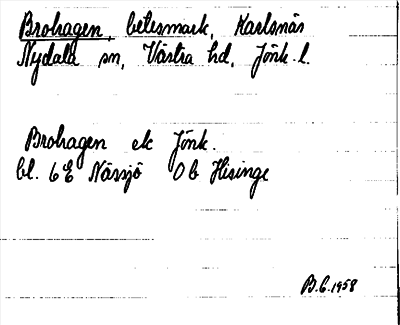 Brohagen, betesmark, Karlsnäs
Nydala sn, Västra hd, Jönk. l.
Brohagen ek Jönk.
bl. 6E Nässjö 0b Hisinge
B.C. 1958